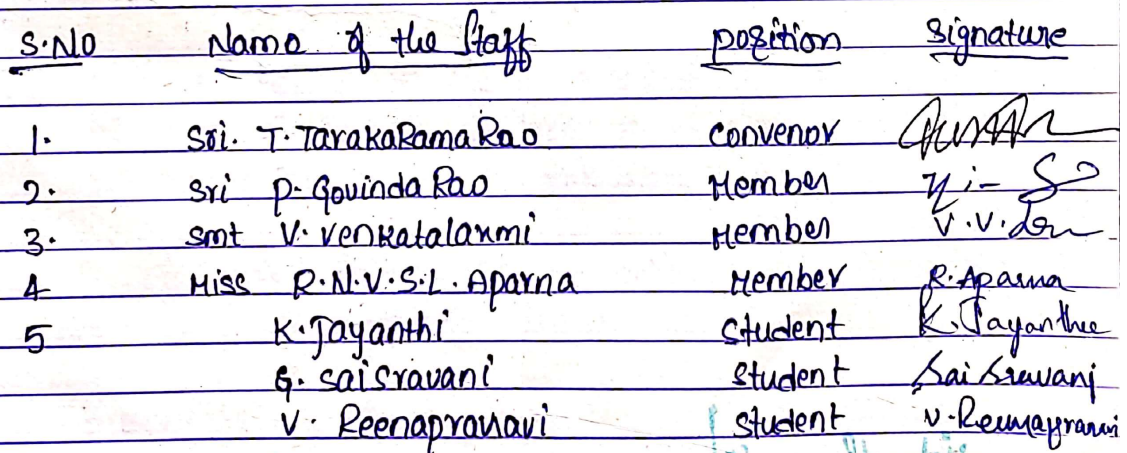 S.No Name of the Staff position Signature
1. Sri. T. TarakaRama Rao convenor
2. Sri P. Govinda Rao Member
3. Smt V. Venkatalaxmi Member V.V.
4 Miss R.N.V.S.L. Aparna Member R. Aparna
5 K. Jayanthi Student K. Jayanthee
G. Sai Sravani Student Sai Sravani
V. Reenapranavi Student V. Reenapranavi